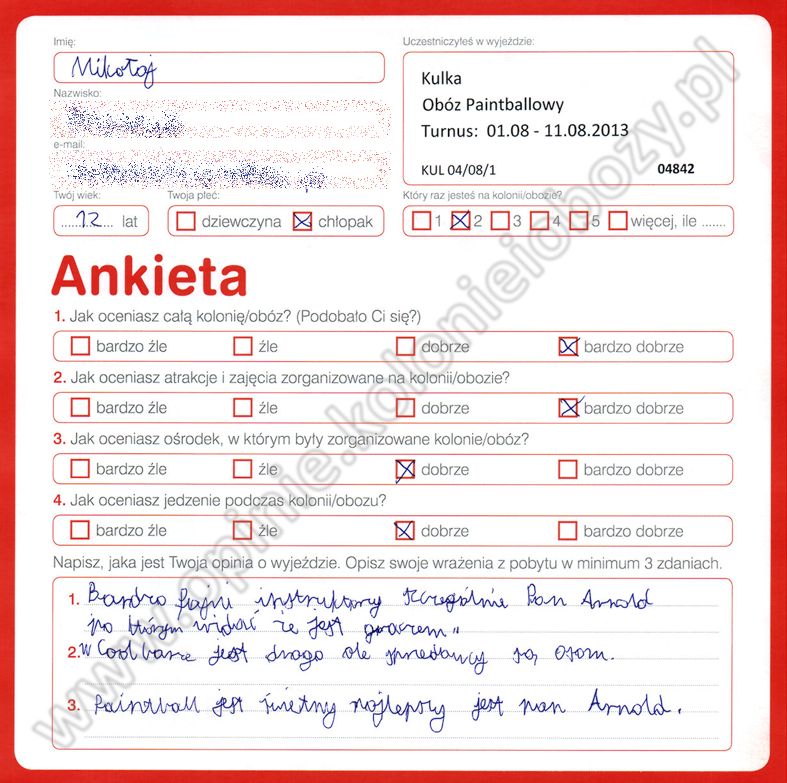 Imię:
Mikołaj
Nazwisko:
e-mail:
Twój wiek:
12 lat
Twoja płeć:
dziewczyna chłopak
Uczestniczyłeś w wyjeździe:
Kulka
Obóz Paintballowy
Turnus: 01.08 - 11.08.2013
KUL 04/08/1 04842
Który raz jesteś na kolonii/obozie?
1 2 3 4 5 więcej, ile .......
Ankieta
1. Jak oceniasz całą kolonię/obóz? (Podobało Ci się?)
bardzo źle źle dobrze bardzo dobrze
2. Jak oceniasz atrakcje i zajęcia zorganizowane na kolonii/obozie?
bardzo źle źle dobrze bardzo dobrze
3. Jak oceniasz ośrodek, w którym były zorganizowane kolonie/obóz?
bardzo źle źle dobrze bardzo dobrze
4. Jak oceniasz jedzenie podczas kolonii/obozu?
bardzo źle źle dobrze bardzo dobrze
Napisz, jaka jest Twoja opinia o wyjeździe. Opisz swoje wrażenia z pobytu w minimum 3 zdaniach.
1. Bardzo fajni instruktorzy szczególnie Pan Arnold
po którym widać że jest graczem"
2. W Coolbarze jest drogo ale sprzedawcy są osom.
3. Paintball jest świetny najlepszy jest pan Arnold.
www.opinie.kolonieiobozy.pl